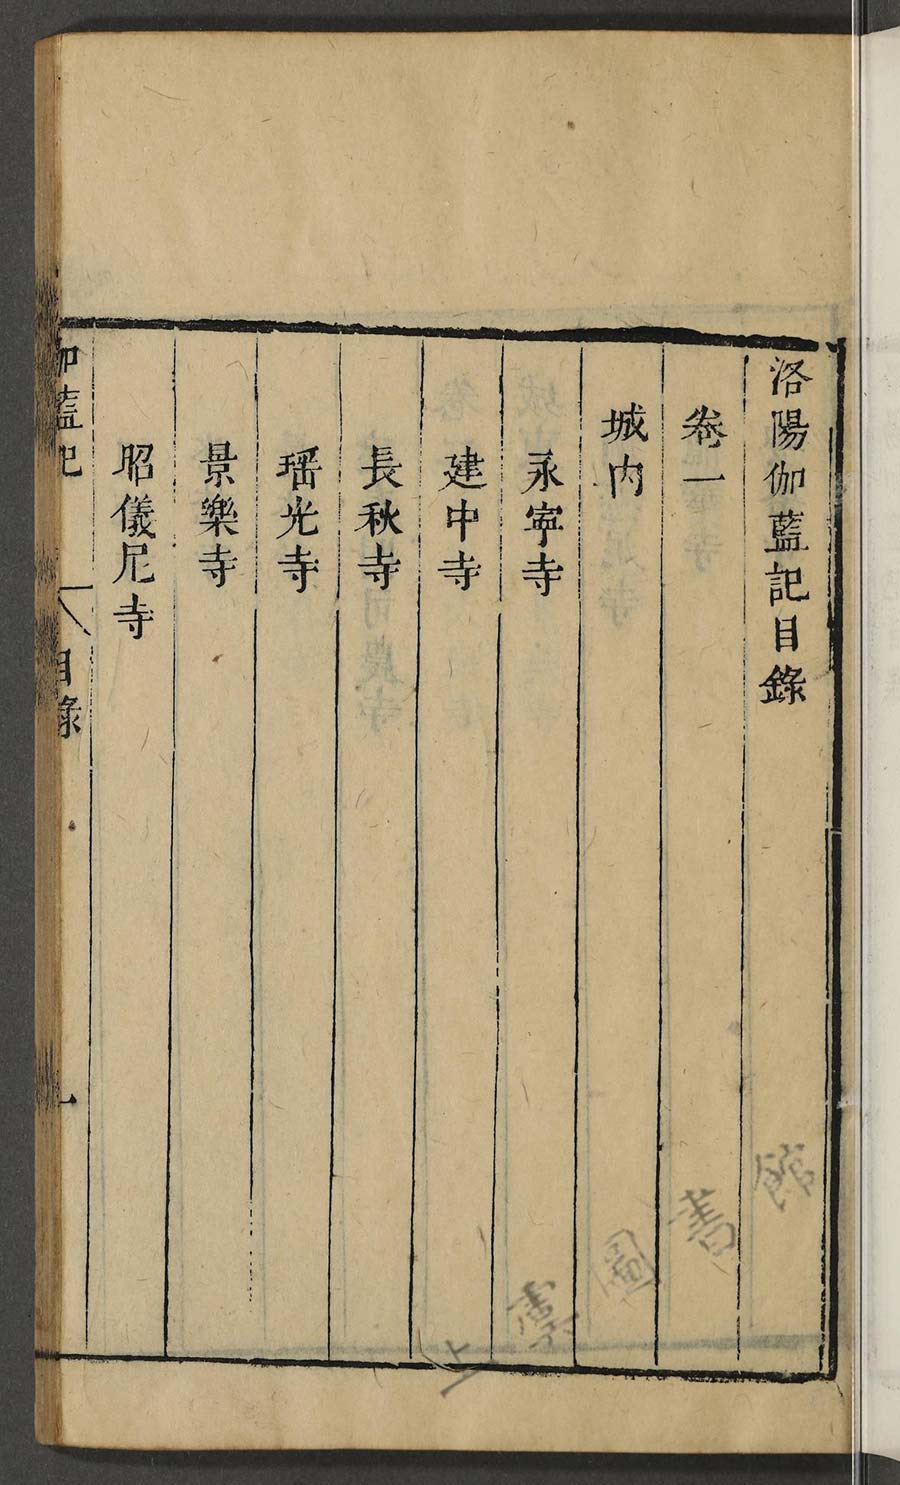 洛陽伽藍記目錄
卷一
城内
永寧寺
建中寺
長秋寺
瑶光寺
景樂寺
昭儀尼寺
伽藍記
目錄
一
上虞圖書館